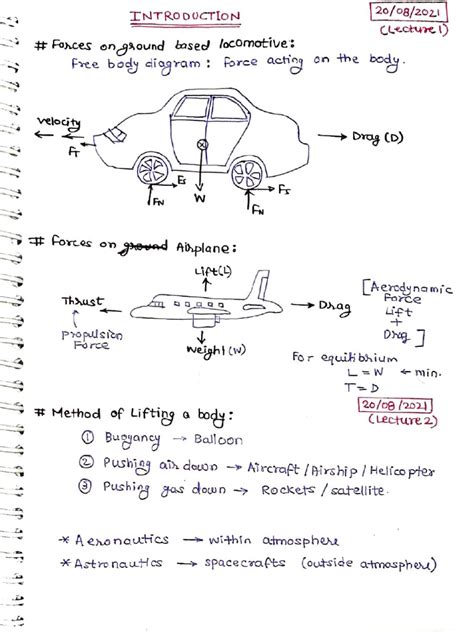 INTRODUCTION
20/08/2021
(Lecture 1)
# Forces on ground based locomotive:
Free body diagram : Force acting on the body.
velocity
FT
Drag (D)
Fs
FN
W
Fs
FN
# Forces on ground Airplane:
Lift(L)
Thrust
Drag
propulsion
Force
Weight (W)
[Aerodynamic
Force
Lift
+
Drag]
For equilibrium
L = W ← min.
T = D
20/08/2021
(Lecture 2)
# Method of Lifting a body:
① Buoyancy → Balloon
② Pushing air down → Aircraft /Airship / Helicopter
③ Pushing gas down → Rockets / satellite.
* Aeronautics → within atmosphere
* Astronautics → spacecrafts (outside atmosphere)